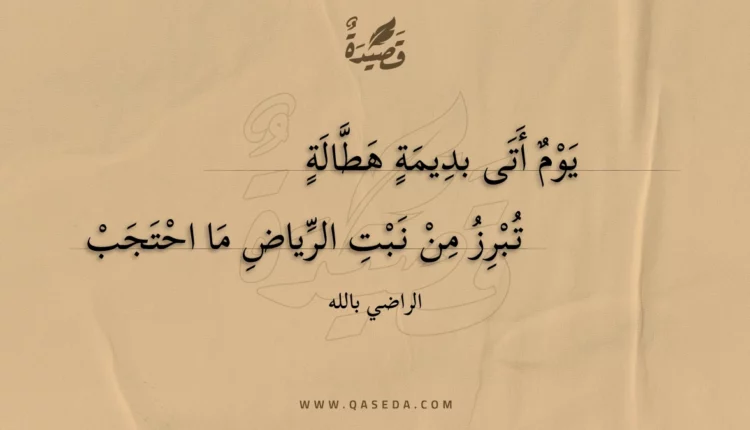 قَصِيدَةٌ
يَوْمٌ أَتَى بدِيمَةٍ هَطَّالَةٍ
تُبْرِزُ مِنْ نَبْتِ الرِّياضِ مَا احْتَجَبْ
الراضي بالله
WWW.QASEDA.COM